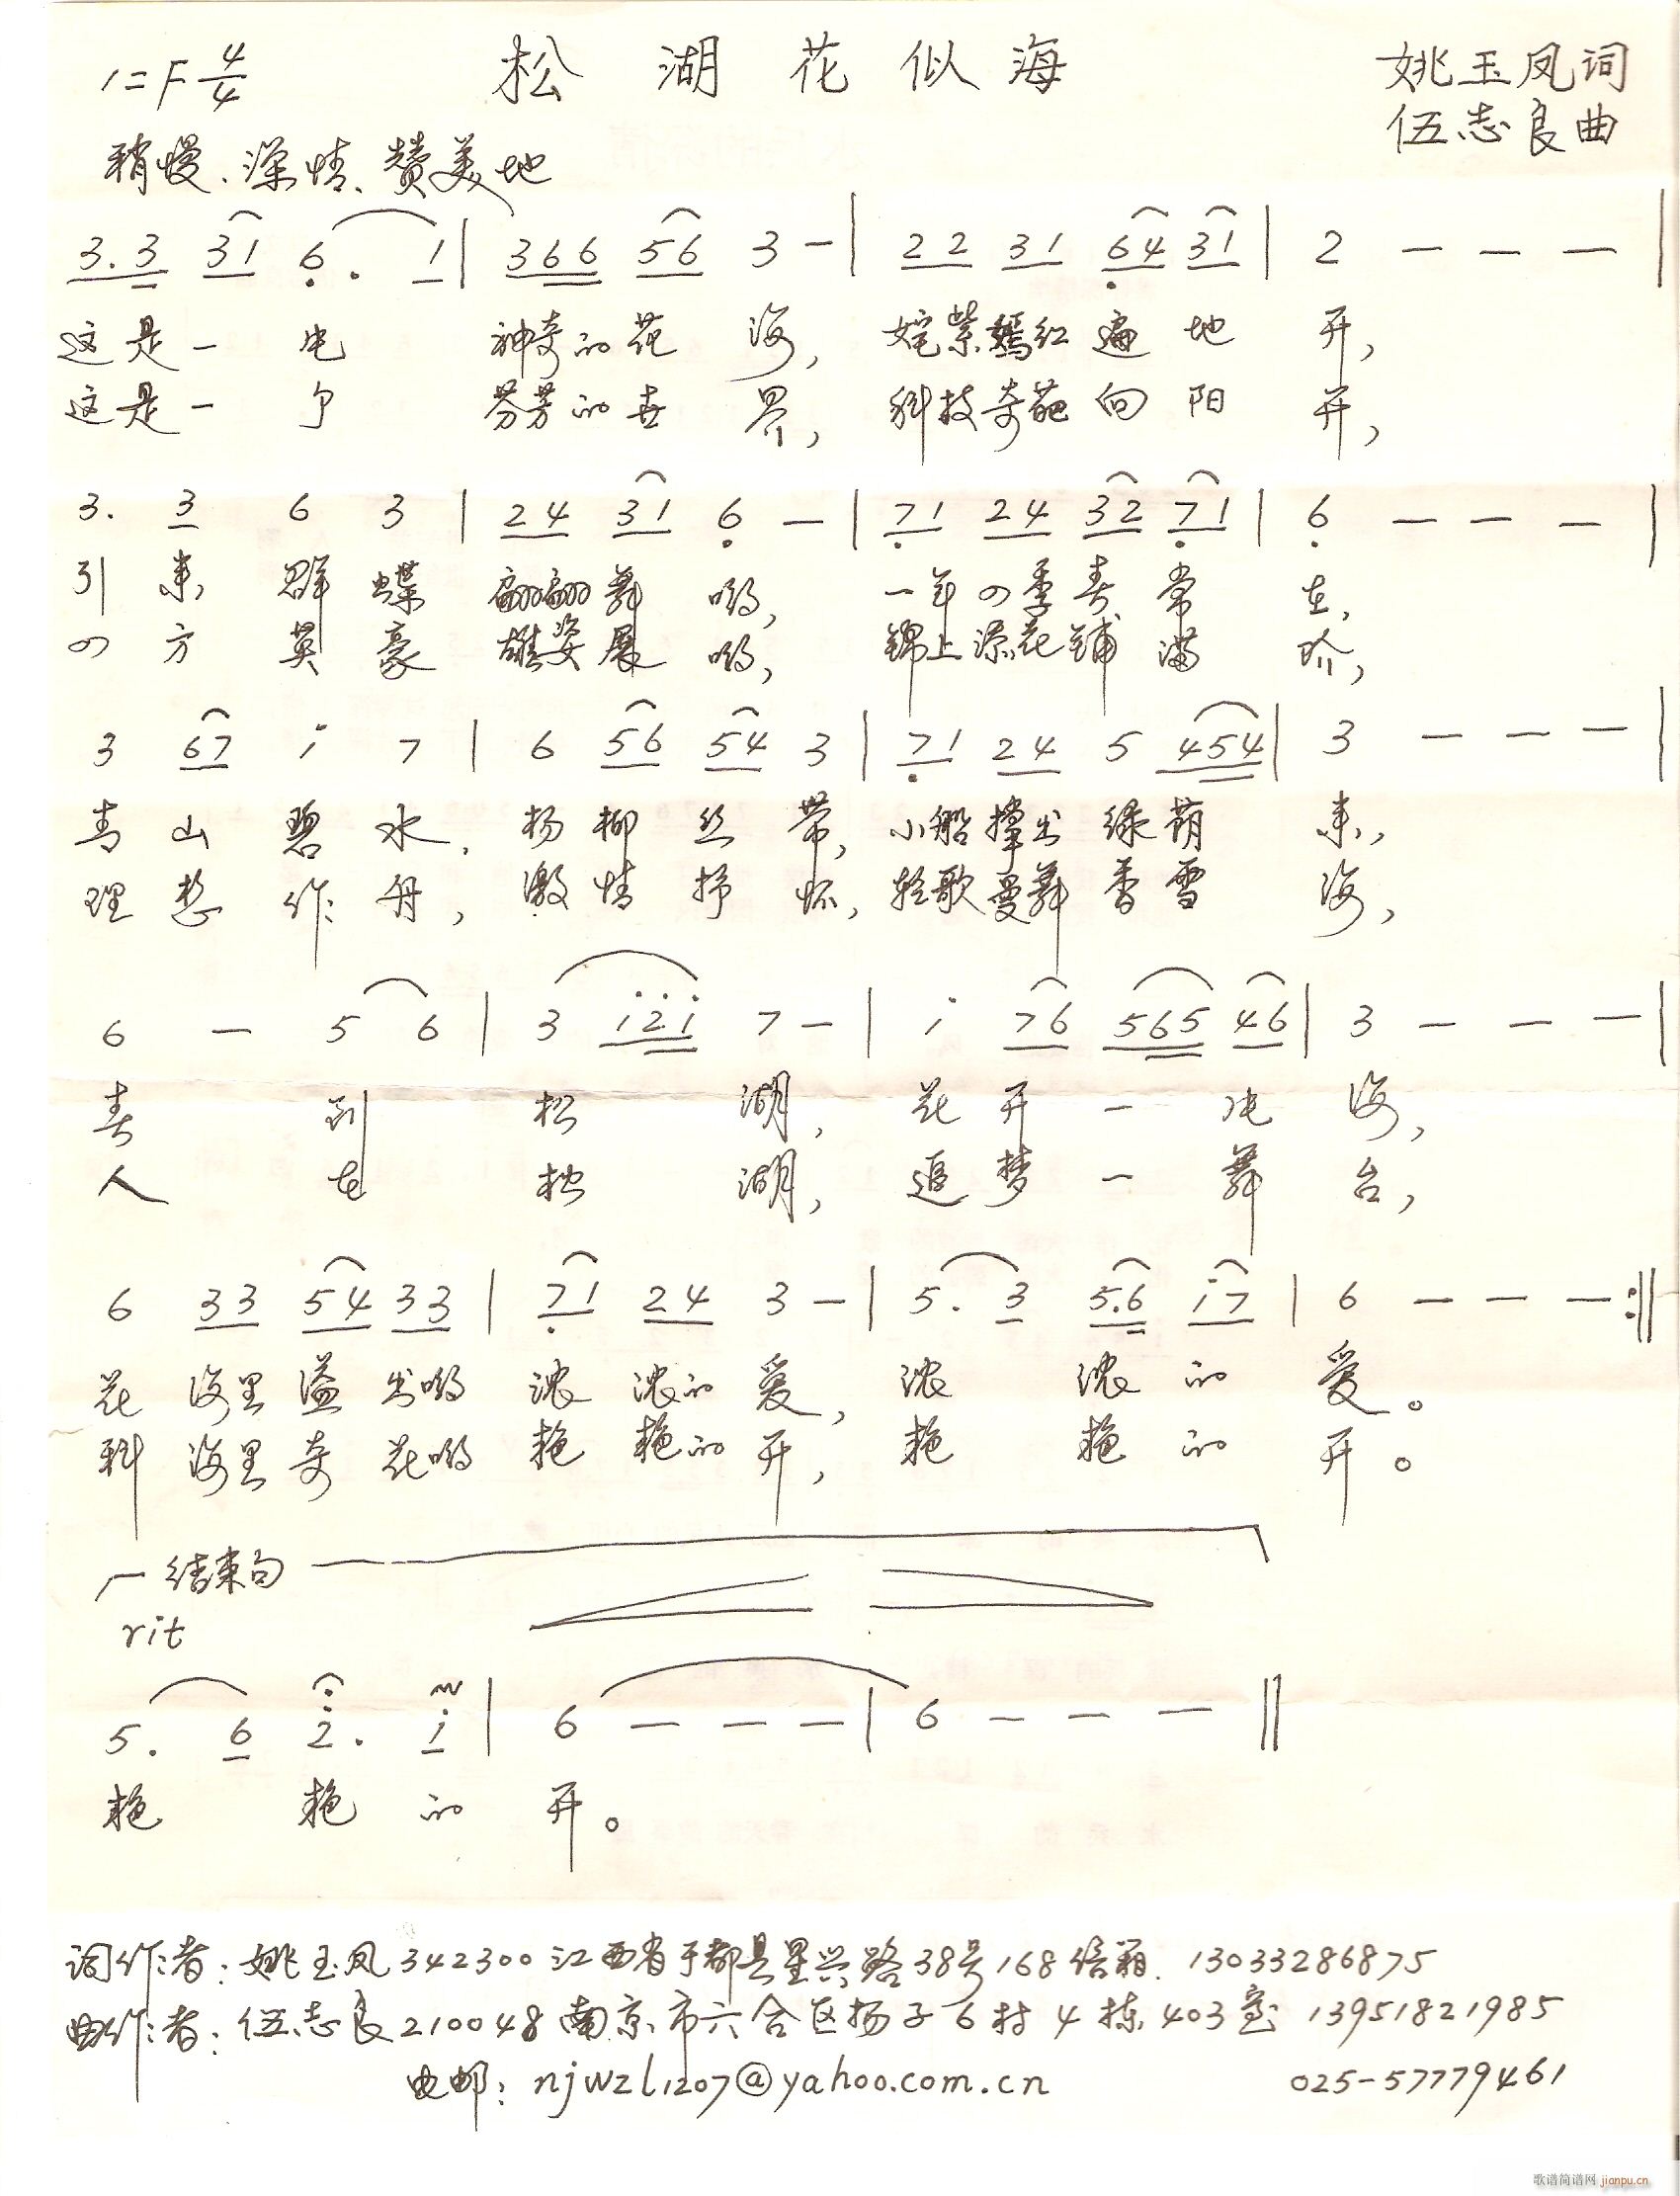 松湖花似海
1=F 4/4
姚玉凤词
伍志良曲
稍慢、深情、赞美地
3.3 31 6. 1 | 366 56 3 — | 22 31 64 31 | 2 — — — |
这是一 神奇的花 海, 姹紫嫣红遍 地 开,
这是一 个 芬芳的世 界, 科技奇葩向 阳 开,
3. 3 6 3 | 24 31 6 — | 71 24 32 71 | 6 — — — |
引 来 群 蝶 翩翩舞 哟, 一年四季春 常 在,
四 方 英 豪 雄姿展 哟, 锦上添花铺 满
3 67 i 7 | 6 56 54 3 | 71 24 5 454 | 3 — — — |
青 山 碧 水, 杨 柳 丝 带, 小船撑出 绿荫 来,
理想 作舟, 激 情 抒 怀, 轻歌曼舞 香雪 海,
6 — 5 6 | 3 i2i 7 — | i 76 565 46 | 3 — — — |
春 到 松 湖, 花 开 一 海,
人 在 松 湖, 追 梦 一 舞 台,
6 33 54 33 | 71 24 3 — | 5. 3 5.6 i7 | 6 — — — :‖
花 海里 溢 出哟 浓 浓的 爱, 浓 浓 的 爱。
科 海里 奇 花哟 艳 艳的 开, 艳 艳 的 开。
结束句
rit
5. 6 2. i | 6 — — — | 6 — — — ‖
艳 艳 的 开。
词作者:姚玉凤342300江西省于都县 兴路38号168信箱. 13033286875
曲作者:伍志良210048南京市六合区扬子6村4栋403室 13951821985
电邮:njwzl1207@yahoo.com.cn 025-57779461
歌谱简谱网 jianpu.cn